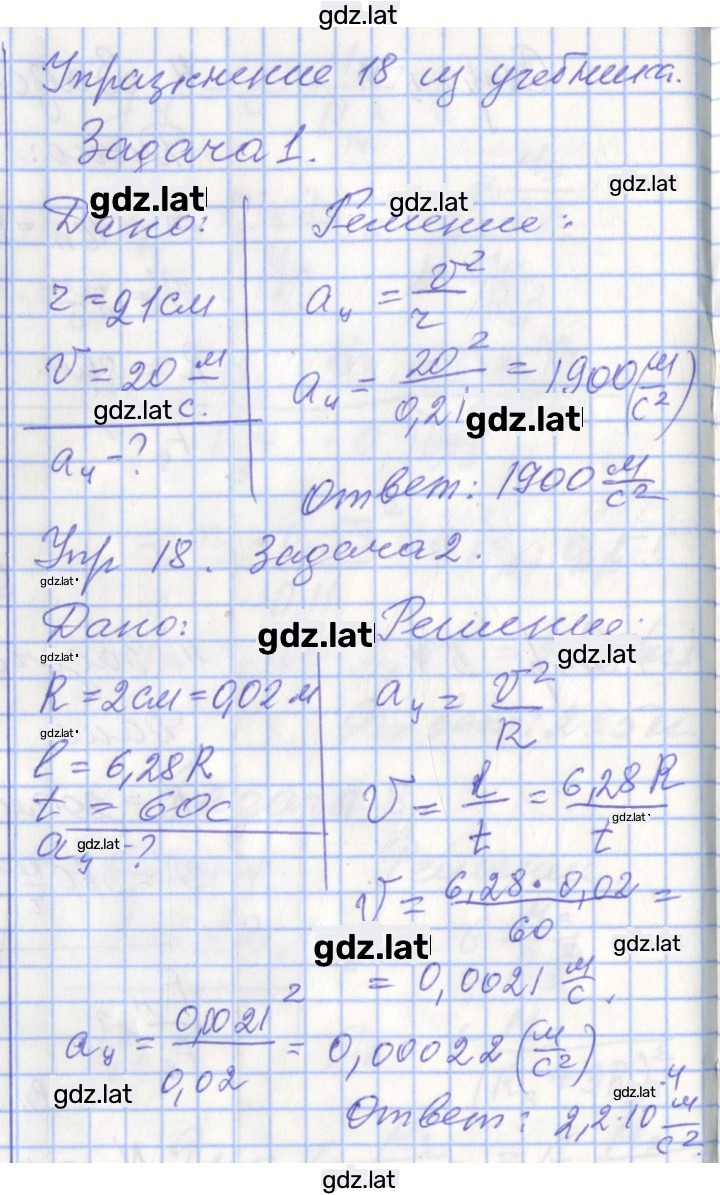 gdz.lat
Упражнение 18 из учебника.
Задача 1.
gdz.lat
gdz.lat
gdz.lat
Дано:
Решение:
r = 21 см
v = 20 м/с.
gdz.lat
a_ц - ?
a_ц = v²/r
a_ц = 20²/0,21 = 1900 (м/с²)
gdz.lat
Ответ: 1900 м/с²
Упр 18. Задача 2.
gdz.lat
Дано:
gdz.lat
Решение:
gdz.lat
gdz.lat
R = 2 см = 0,02 м
gdz.lat
l = 6,28 R
t = 60 с
a_ц - ?
gdz.lat
a_ц = v²/R
v = l/t = 6,28 R/t
gdz.lat
v = 6,28 · 0,02/60 =
gdz.lat
gdz.lat
= 0,0021 м/с.
a_ц = 0,0021²/0,02 = 0,00022 (м/с²)
gdz.lat
gdz.lat
Ответ: 2,2·10⁻⁴ м/с².
gdz.lat